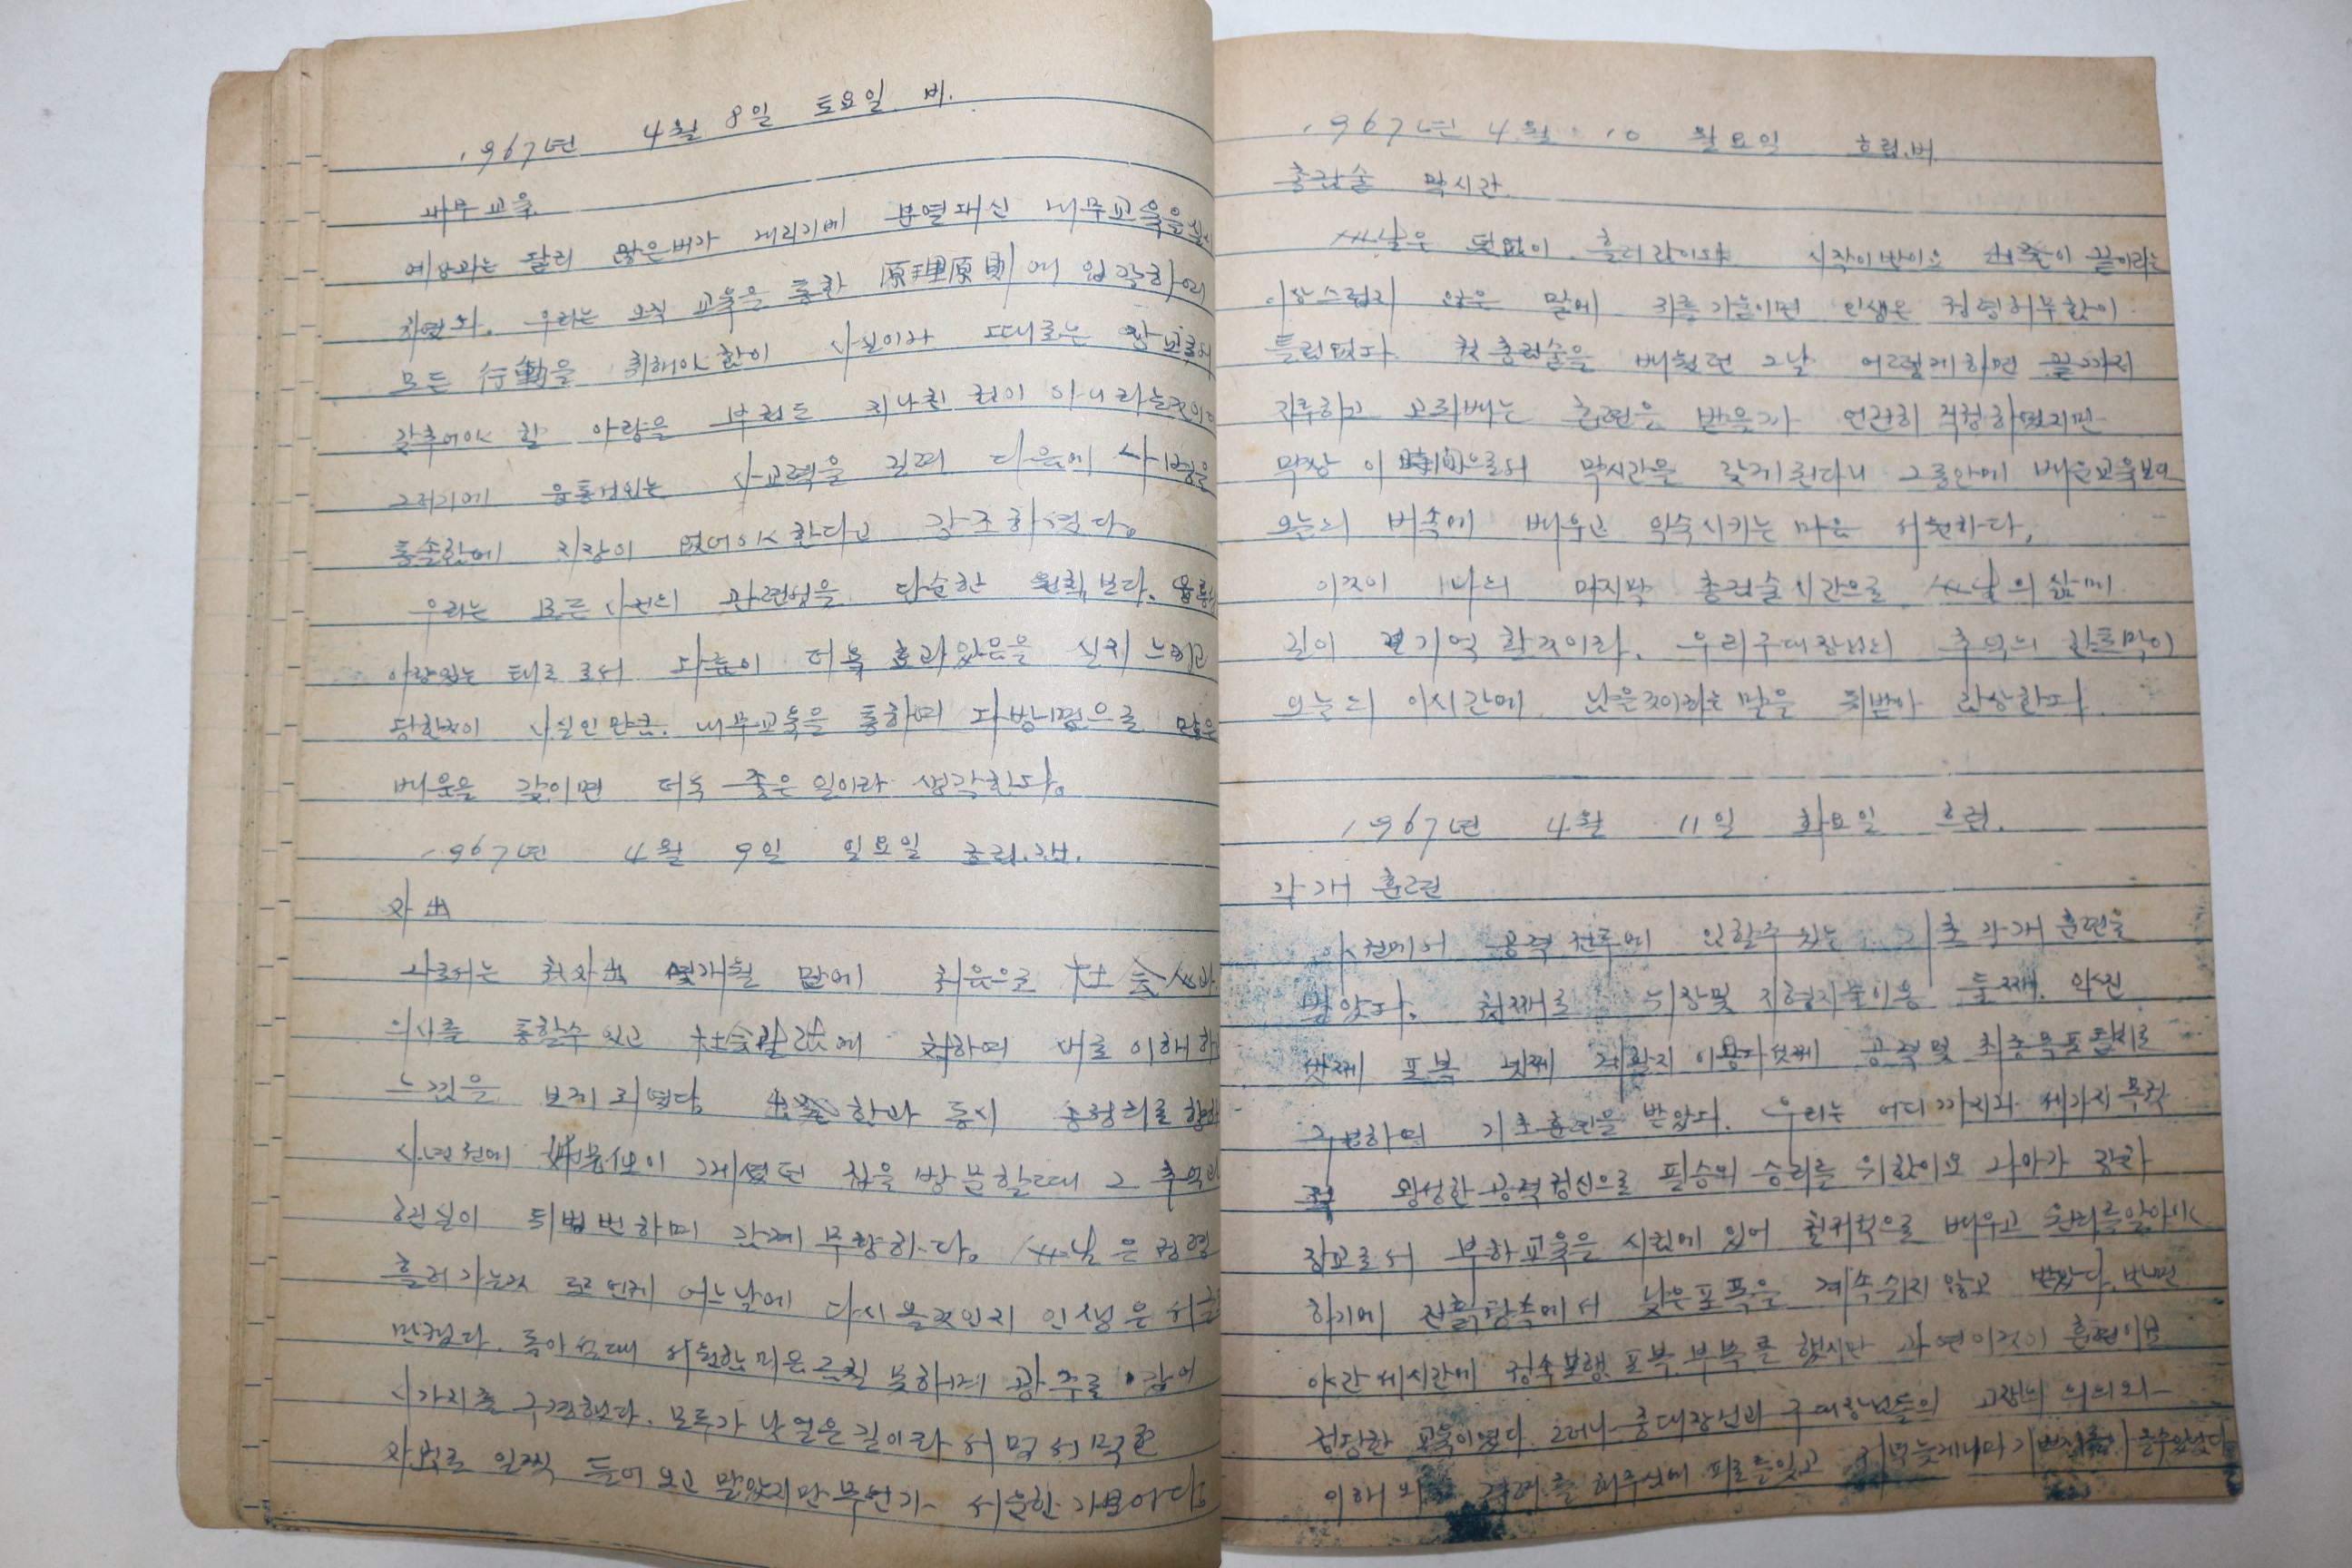 1967년 4월 8일 토요일. 비.
내무교육.
예상과는 달리 많은비가 내리기에 분열대신 내무교육을
치였다. 우리는 오직 교육을 통한 原理原則에 입각하여
모든 行動을 취해야함이 사실이나 때로는 장교로서
갖추어야 할 아량을 부쳐도 지나친 것이 아니라는것이다
그러기에 융통성있는 사교력을 길러 다음에 사병을
통솔함에 지장이 없어야 한다고 강조하셨다。
우리는 모든 사건의 관련성을 단순한 원칙보다. 융통
아량있는 태도로서 다룸이 더욱 효과있음을 실지 느끼고
당한것이 사실인만큼. 내무교육을 통하여 다방면으로 많은
배움을 갖이면 더욱 좋은 일이라 생각한다。
1967년 4월 9일 일요일 흐림.
外出
나로서는 첫外出 몇개월 만에 처음으로 社会人과
의사를 통할수 있고 社会물정에 접하여 바로 이해하고
느낌을 보게 되였다。 한과 동시 송정리로 향하
사년전에 계셨던 집을 방문할때 그 추억과
현실이 뒤범벅하며 감개무량하다。 세날은 정령
흘러가는것 또 언제 어느날에 다시 올것인지 인생은 서글
만쳤다. 돌아설때 서운한마음 금칠 못하게 광주를 나와
시가지를 구경했다. 모두가 낯설은 길이라 서먹서먹한
자세로 일찍 들어오고 말았지만 무언가 서운한 기분이다。
1967년 4월 10 월요일 흐림.비
총검술 막시간.
세날은 덧없이 흘러갔이요 시작이반이요 이 끝이라는
이상스럽지 않은 말에 귀를 기울이면 인생은 정령허무함이
틀림없다. 첫총검술을 배웠던 그날 어렇게하면 끝까지
지루하고 고되빠는 훈련을 받을까 언간히 걱정하였지만
막상 이 時間으로서 막시간을 갖게된다니 그동안에 배운교육보다
오늘의 비속에 배우고 익숙시키는 마음 서운하다.
이것이 나의 마지막 총검술시간으로 세날의 삶에
길이 기억 할것이라. 우리구대장님의 추억의 한토막이
오늘의 이시간에 남은것이라는 말을 되받아 감상한다.
1967년 4월 11일 화요일 흐림.
각개 훈련
야전에서 공격전투에 임할수있는 기초각개훈련을
받았다. 첫째로 위장및 지형지물이용 둘째. 약진
셋째 포복 넷째 이용 다섯째 공격및 최종목표돌격로
구분하여 기초훈련을 받았다. 우리는 어디까지나 세가지 목적
왕성한 공격정신으로 필승의 승리를 위함이요 나아가 강한
장교로서 부하교육을 시킴에 있어 철저적으로 배우고 원리를알아야
하기에 진흙탕속에서 낮은포복을 계속쉬지 않고 받았다. 반면
야간 세시간에 정숙보행 포복.부복을 했지만 과연이것이 훈련이요
정당한 교육이였다. 그러나 중대장님과 구대장님들의 고생의 의의와
이해와 격려를 해주심에 피로를잊고 저녁늦게나마 기쁜잠자리 들수있었다